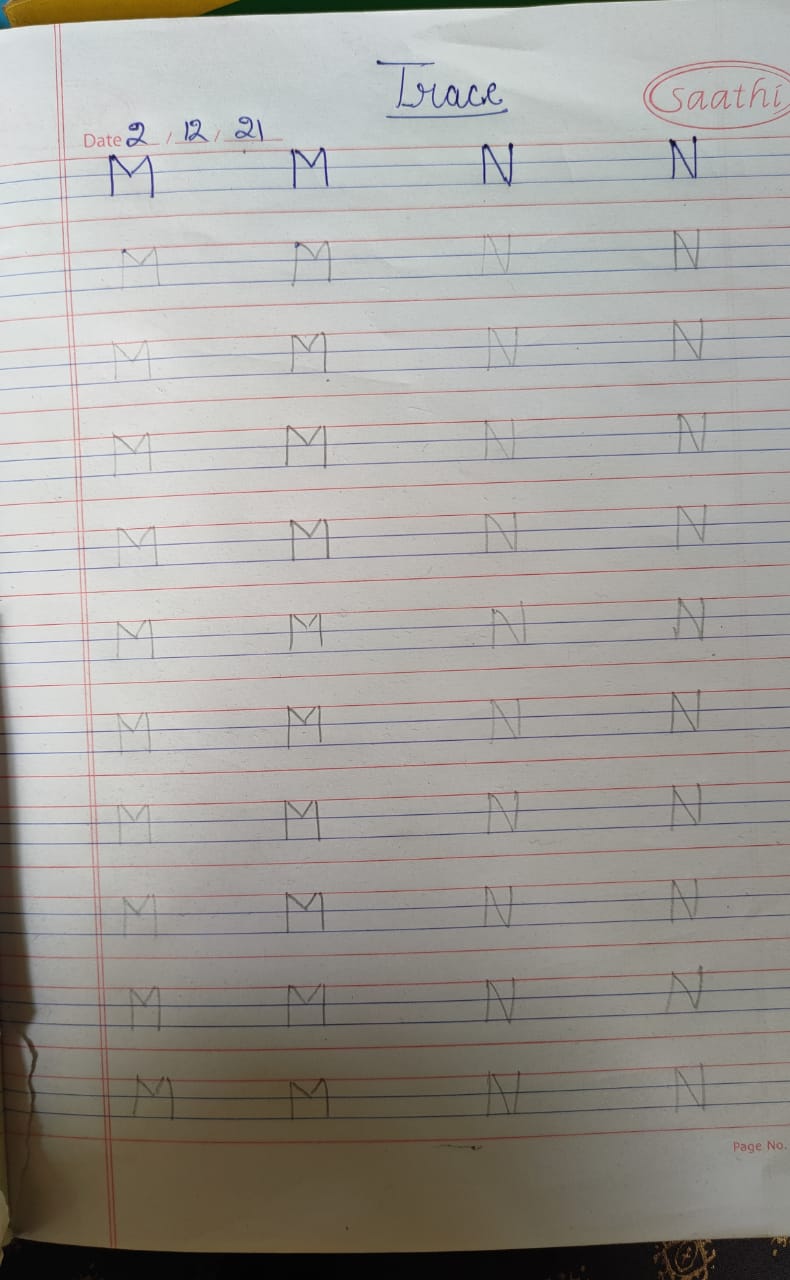 Trace
saathi
Date 2 / 12 / 21
M M N N
M M N N
M M N N
M M N N
M M N N
M M N N
M M N N
M M N N
M M N N
M M N N
M M N N
Page No.